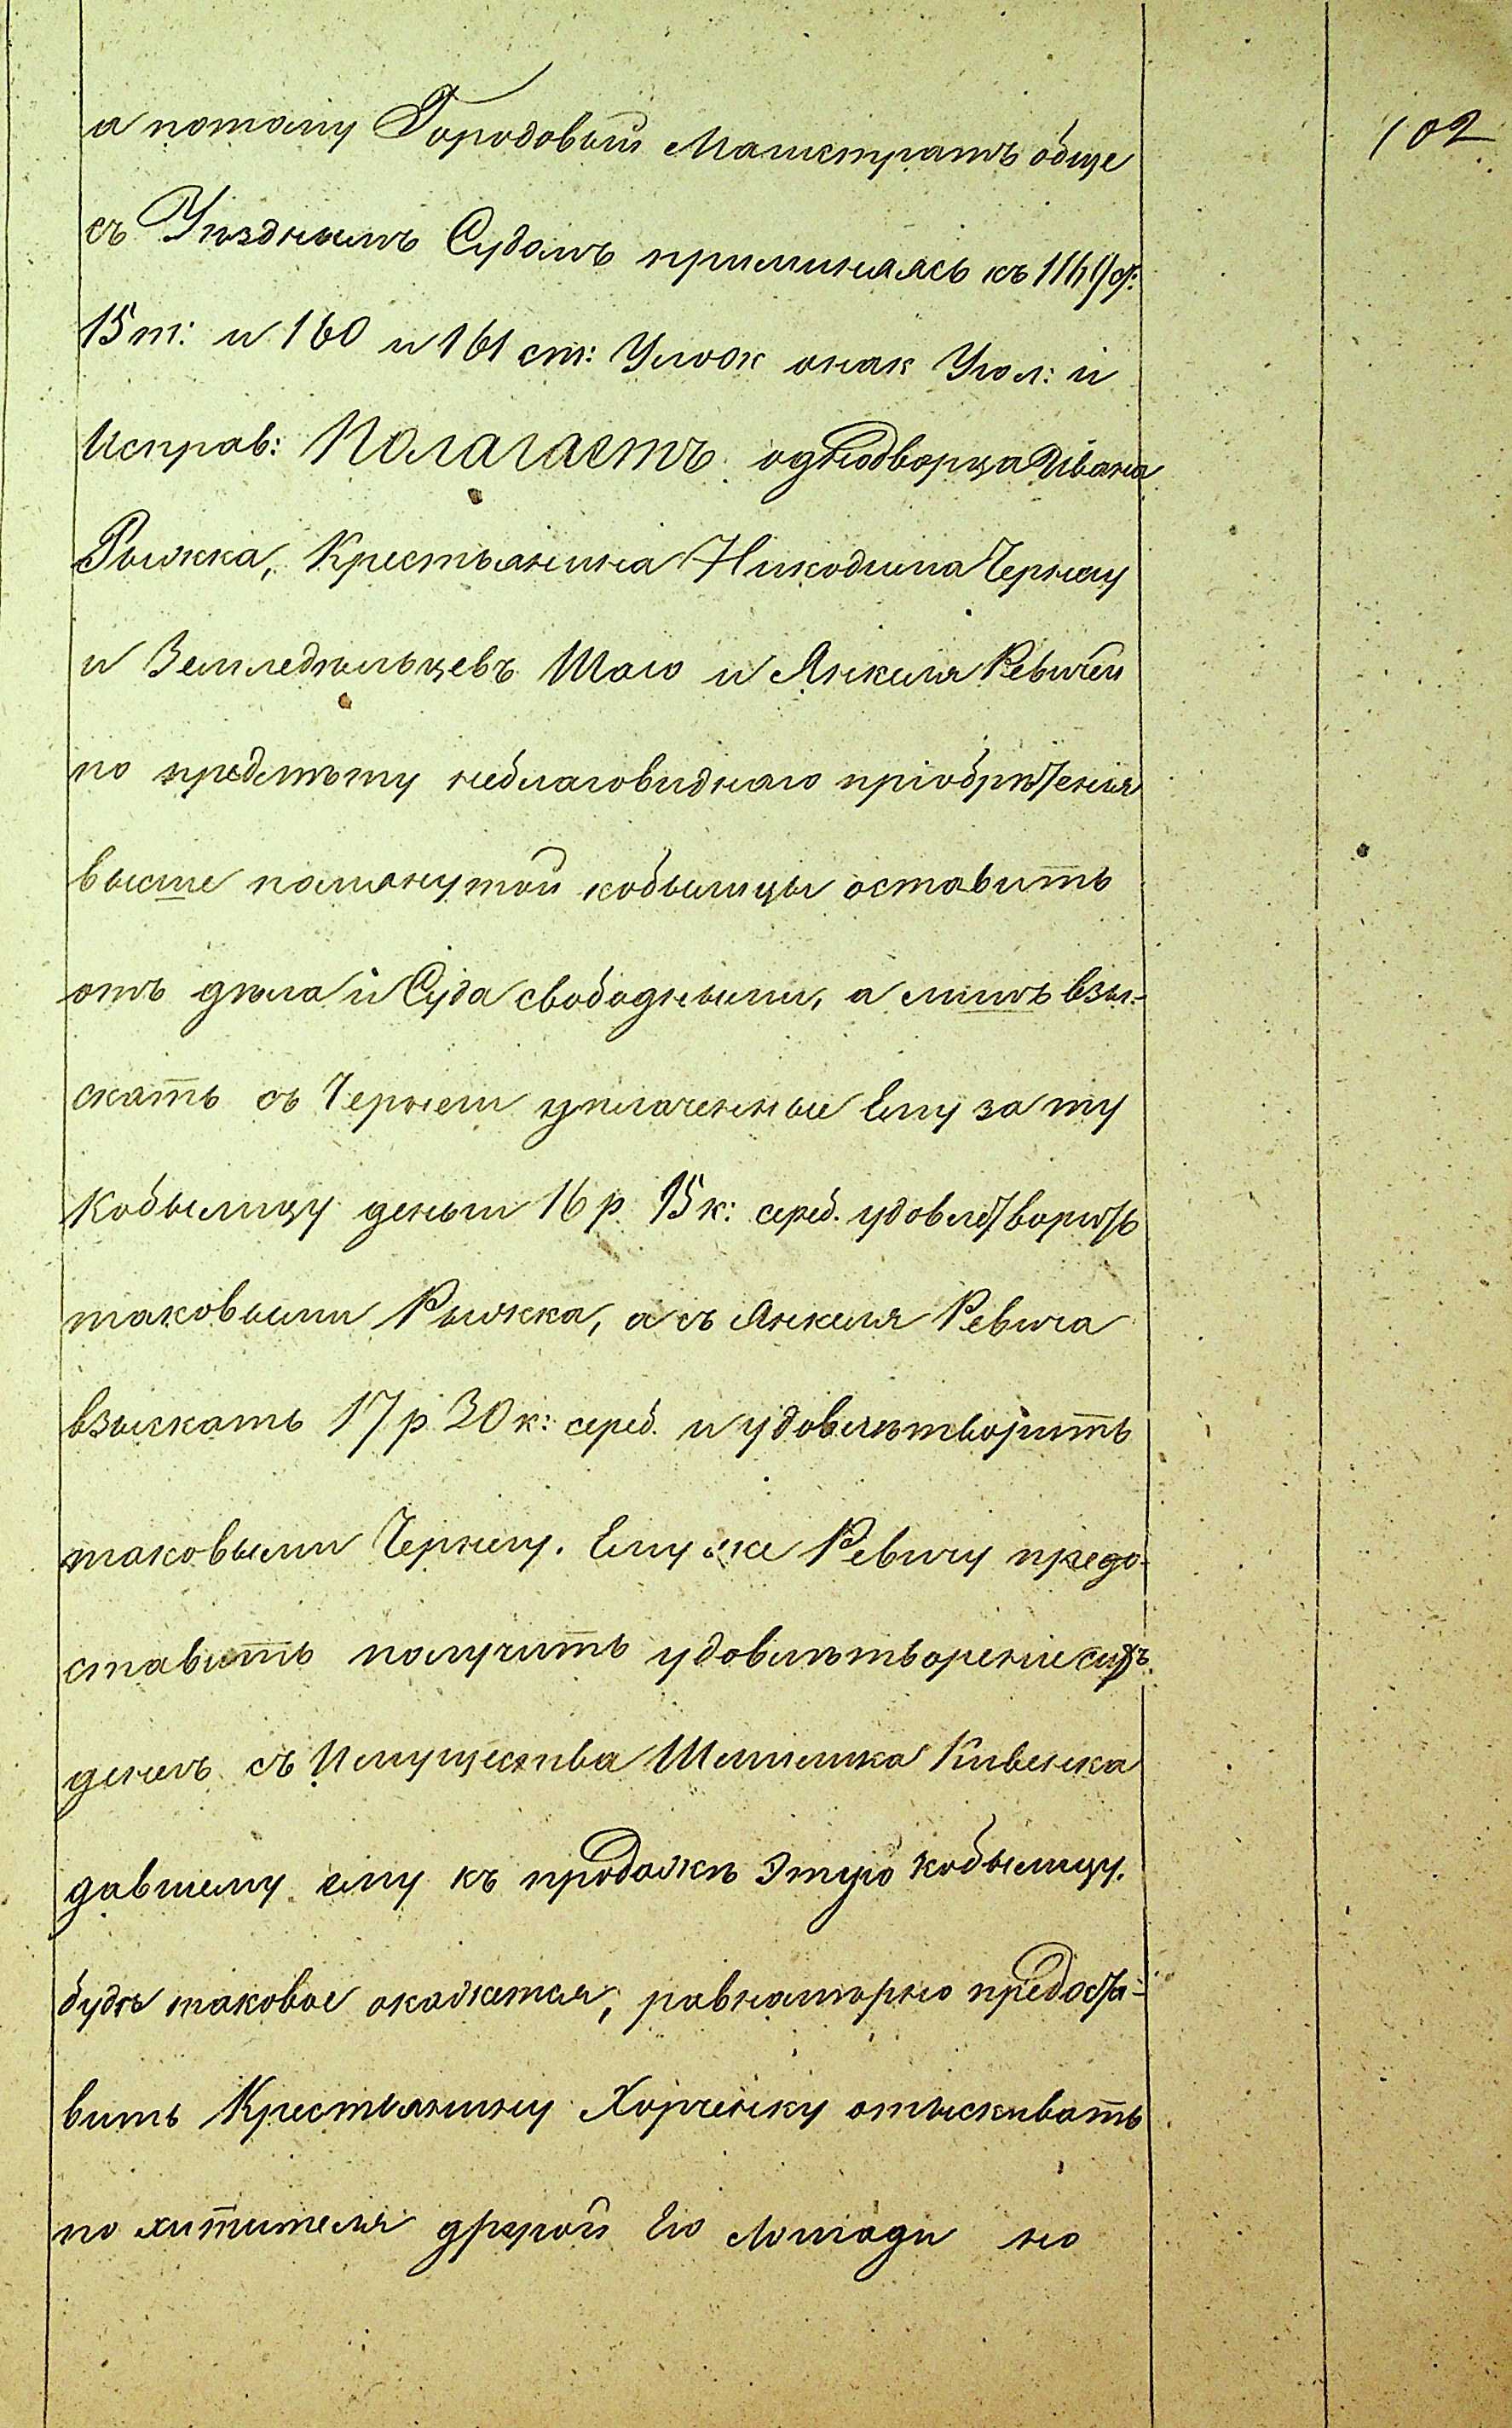 а потому Городовый Магистратъ обще
102
съ Уѣзднымъ Судомъ примѣняясь къ
15 т: и 160 и 161 ст: Улож о нак Угол: и
Исправ: Полагаетъ однодворца Ивана
Рыжка, Крестьянина Никодима Черному
и Земледѣльцевъ Шаю и Янкеля Ревичей
по предмѣту неблаговиднаго пріобрѣтенія
выше помянутой кобылицы оставить
отъ дѣла и Суда свободными, а лишь взы-
скать съ Чернеги уплаченные Ему за ту
кобылицу деньги 16 р 15 к: сереб. удовлетворить
таковыми Рыжка, а съ Янкеля Ревича
взыскать 17 р 30 к: сереб. и удовлѣтворить
таковыми Чернегу. Ему же Ревичу предо-
ставить получить удовлѣтвореніе сихъ
денегъ съ Имущества Шлиомка Кивенка
давшему ему къ продажѣ этую кобылицу,
будѣ таковое окажется, равномѣрно предоста-
вить Крестьянину Хорченку отыскивать
похитителя другой Его лошади но